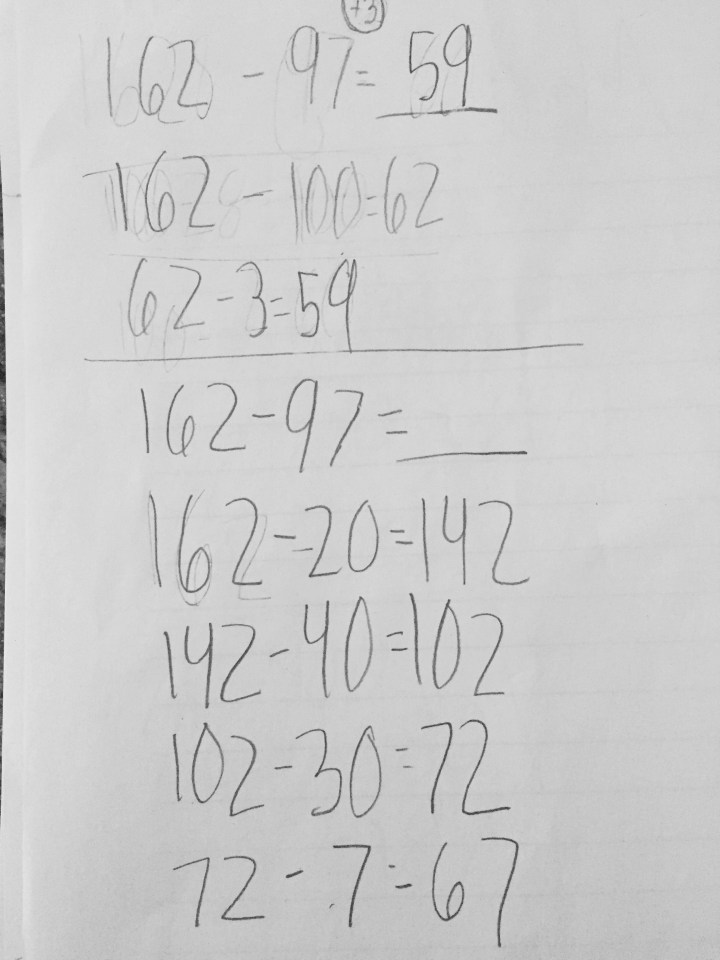 +3
162 - 97 = 59
162 - 100 = 62
62 - 3 = 59
162 - 97 = ___
162 - 20 = 142
142 - 40 = 102
102 - 30 = 72
72 - 7 = 67